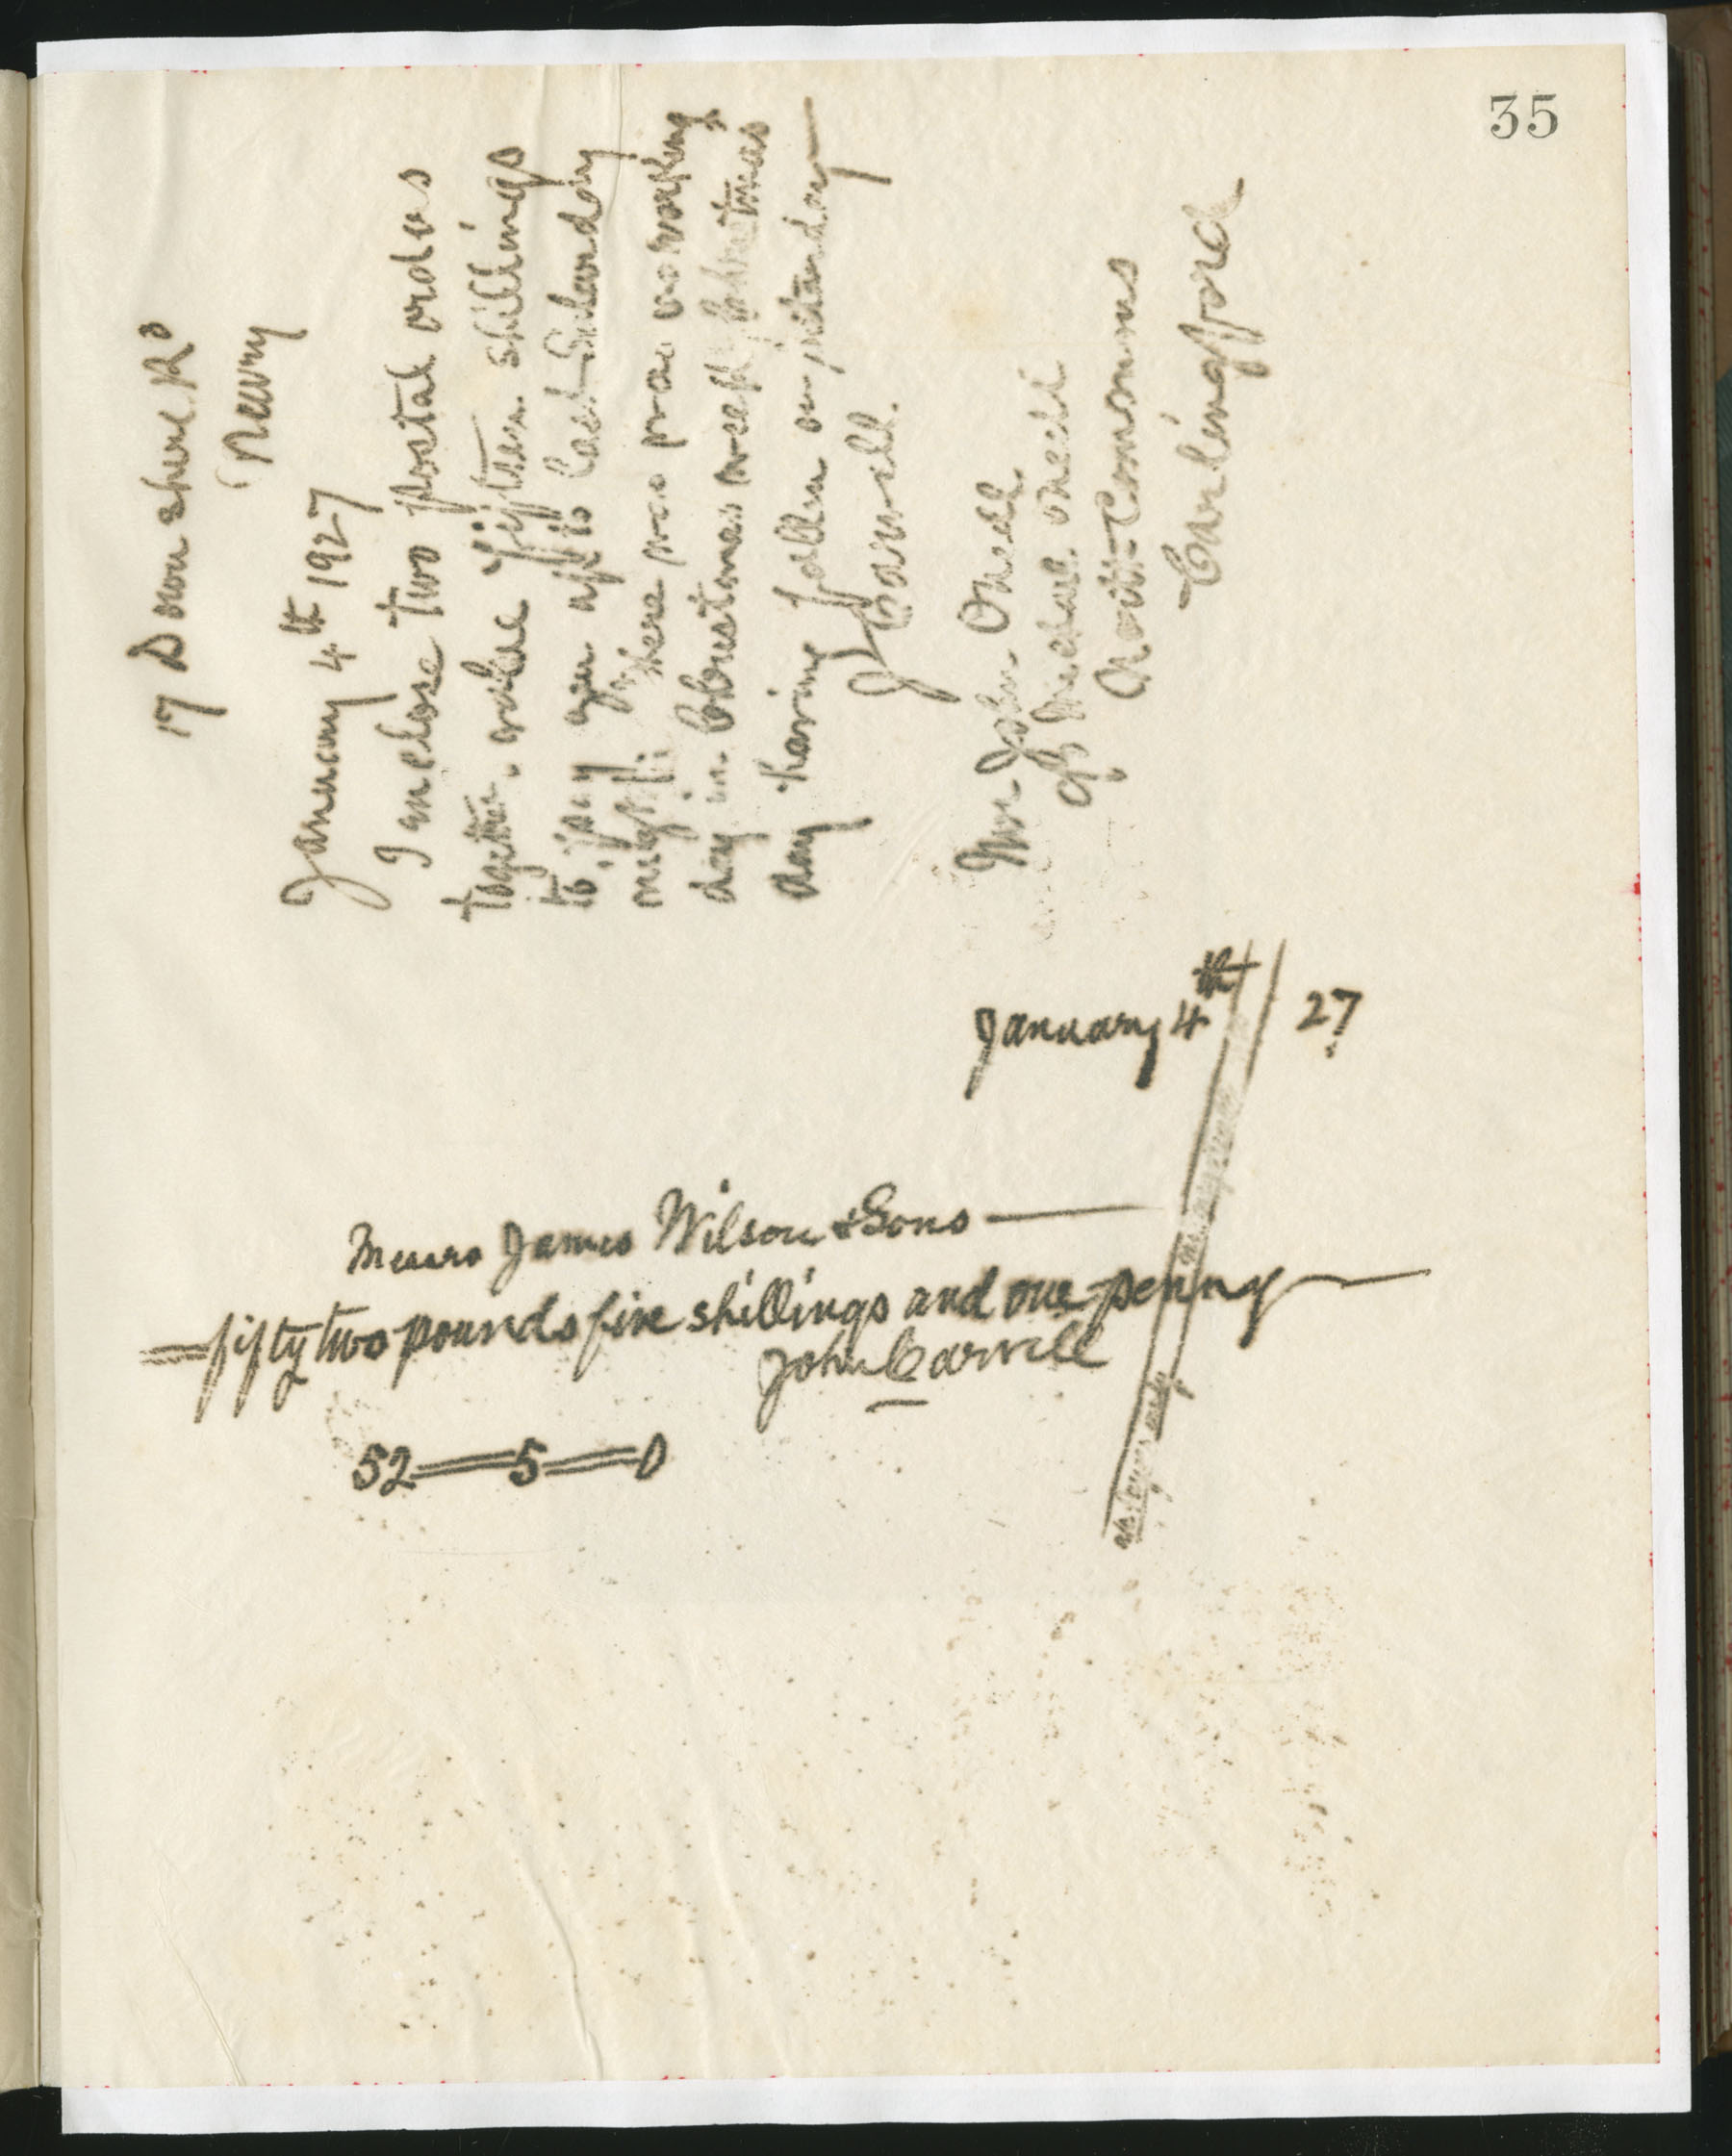 35
17 Downshire Rd
Newry
January 4th 1927
I enclose two postal orders
together value fifteen shillings
to pay you up to last Saturday
night. There was one working
day in Christmas week Christmas
day having fallen on Saturday
J Carvill.
Mr John Oneill
℅ Michael Oneill
North Commons
Carlingford
January 4th 27
Messrs James Wilson & Sons
fifty two pounds five shillings and one penny
John Carvill
52 = 5 = 0